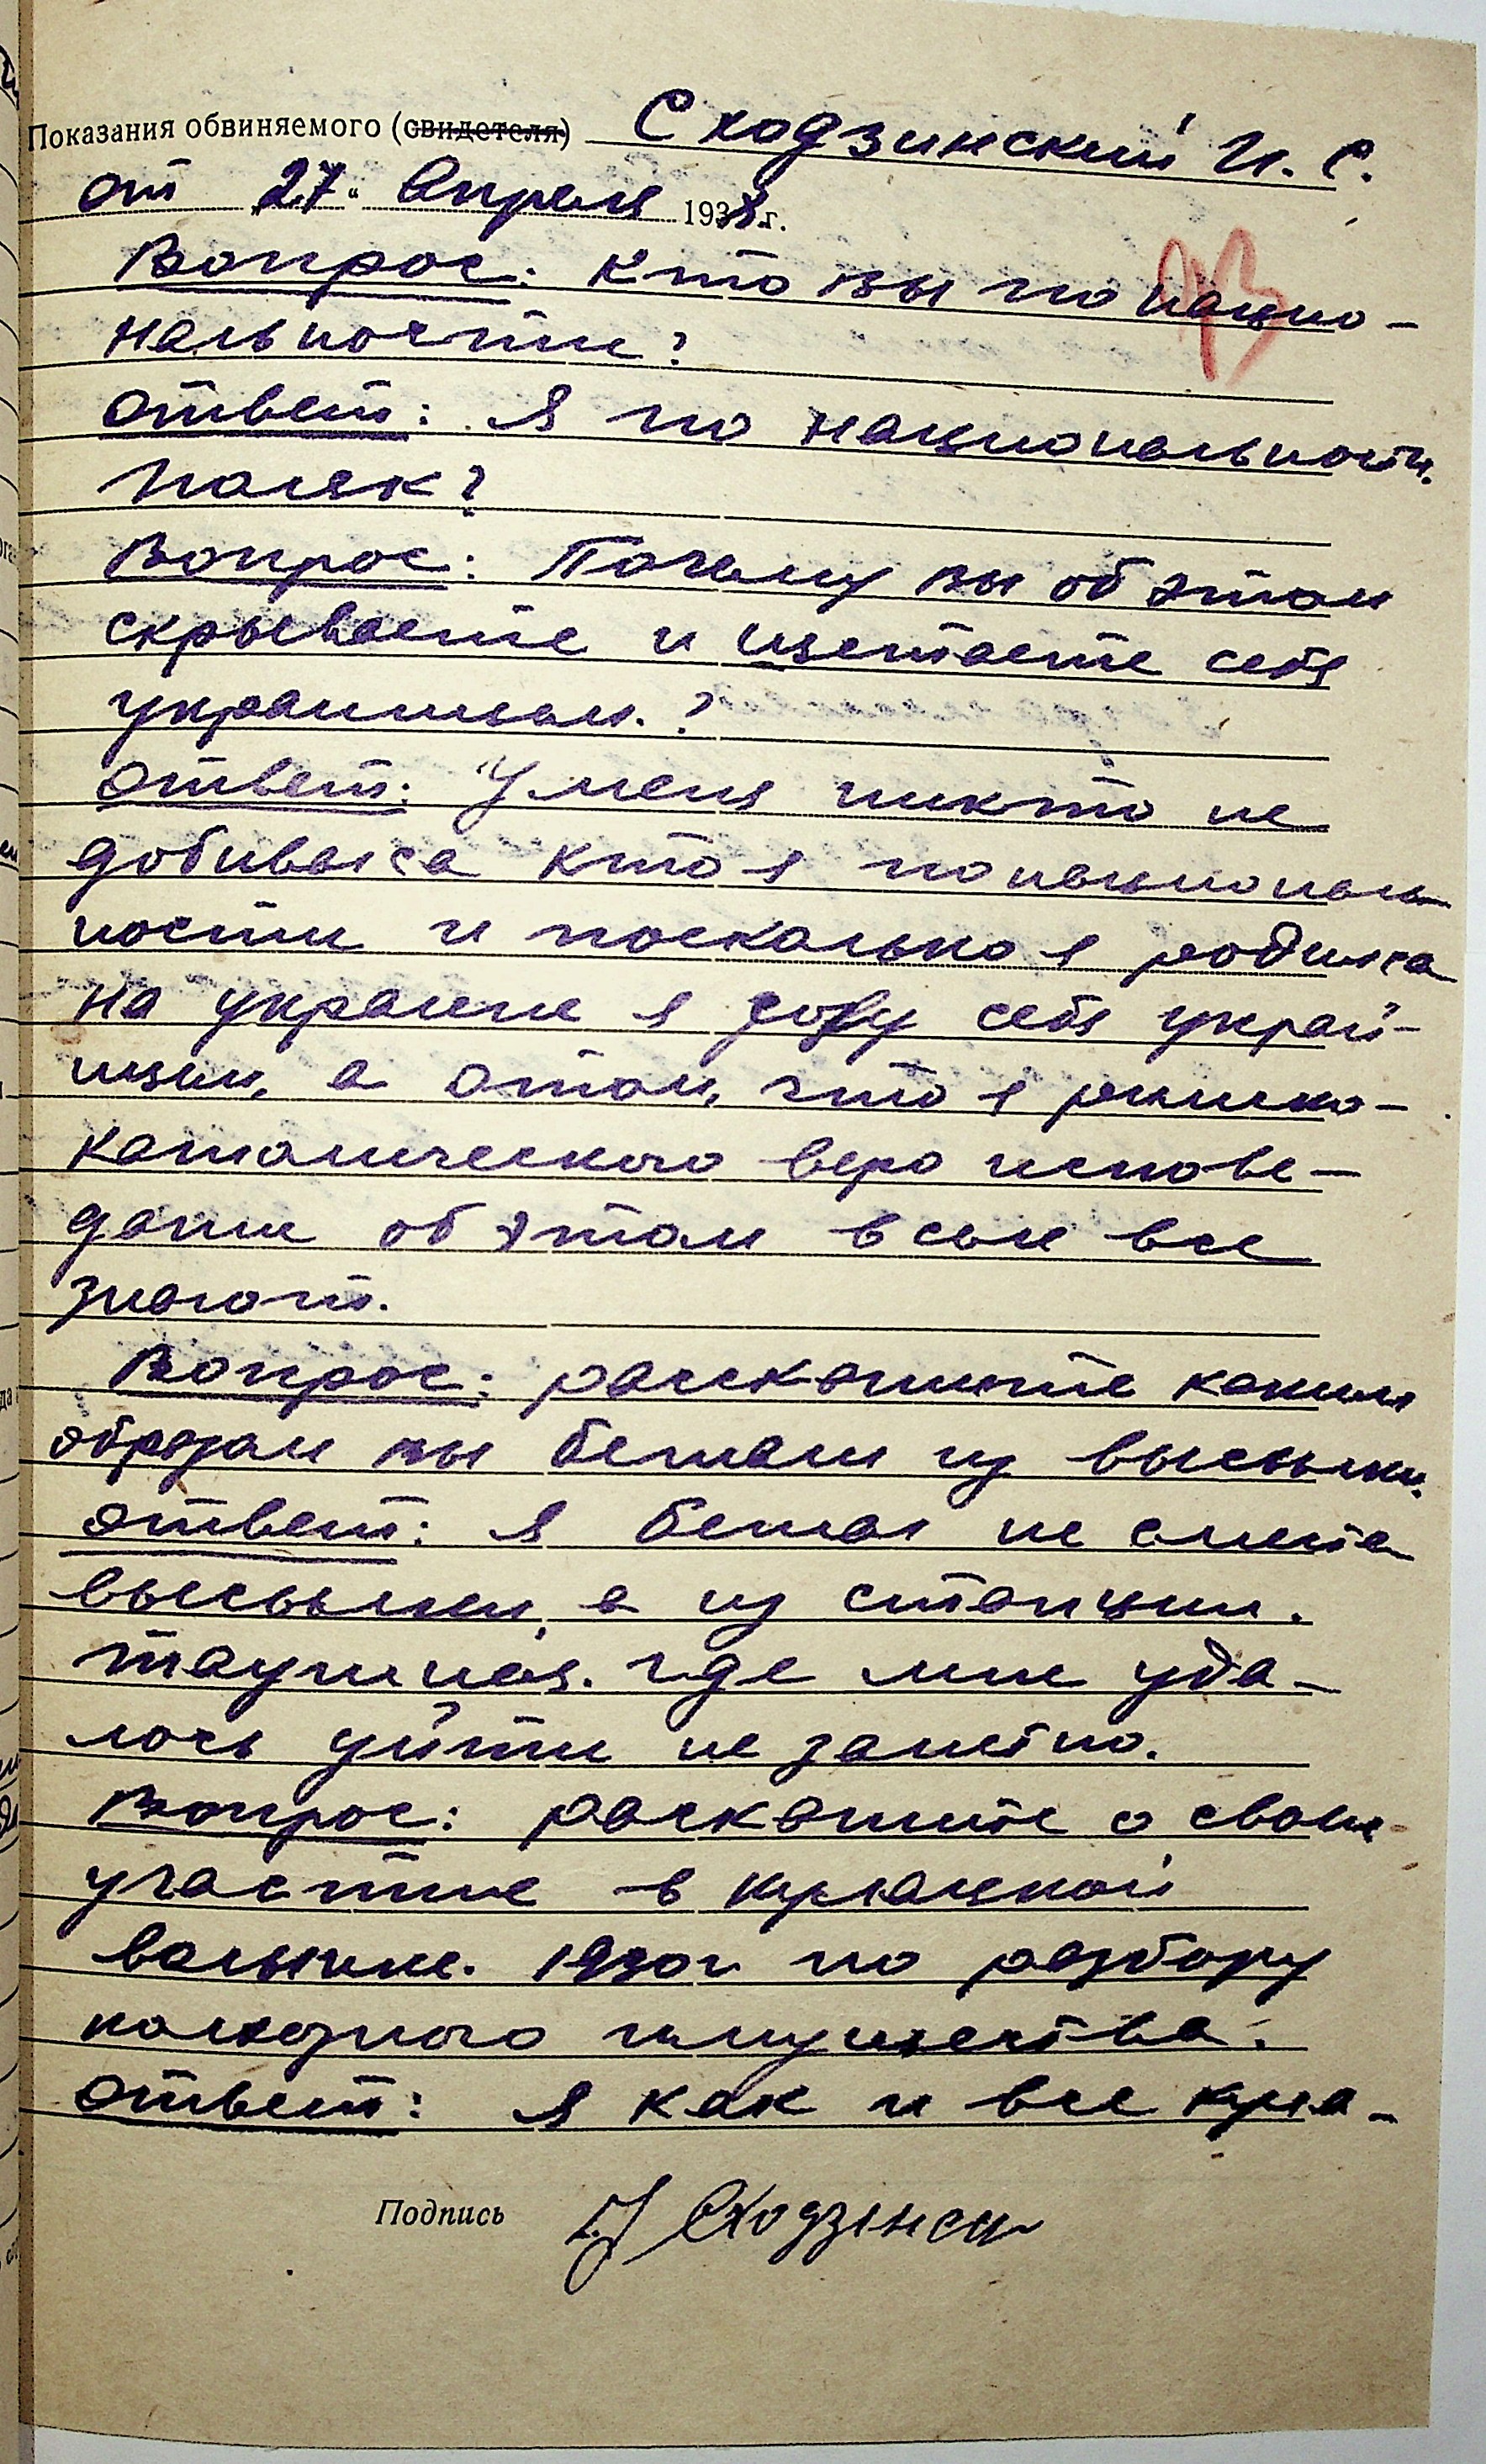 Показания обвиняемого (свидетеля) Сходзинский И. С.
от "27" Апреля 1938 г.
Вопрос: Кто вы по нацио-
нальности?
Ответ: Я по национальности
поляк?
Вопрос: Почему вы об этом
скрываете и щетаете себя
украинцем.?
Ответ: У меня никто не
добивался кто я по националь
ности и поскольку я родился
на украине я себя украи-
нцем, а о том, что я римско-
католического веро испове-
дания об этом в селе все
знают.
Вопрос: раскажите каким
образом вы бежали из высылки.
Ответ: Я бежал не с места
высылки, а из станции.
где мне уда-
лось уйти не заметно.
Вопрос: раскажите о своем
участие в кулацкой
волынке. 1930г по разбору
колхозного имущества.
Ответ: Я как и все кула-
Подпись Сходзінски